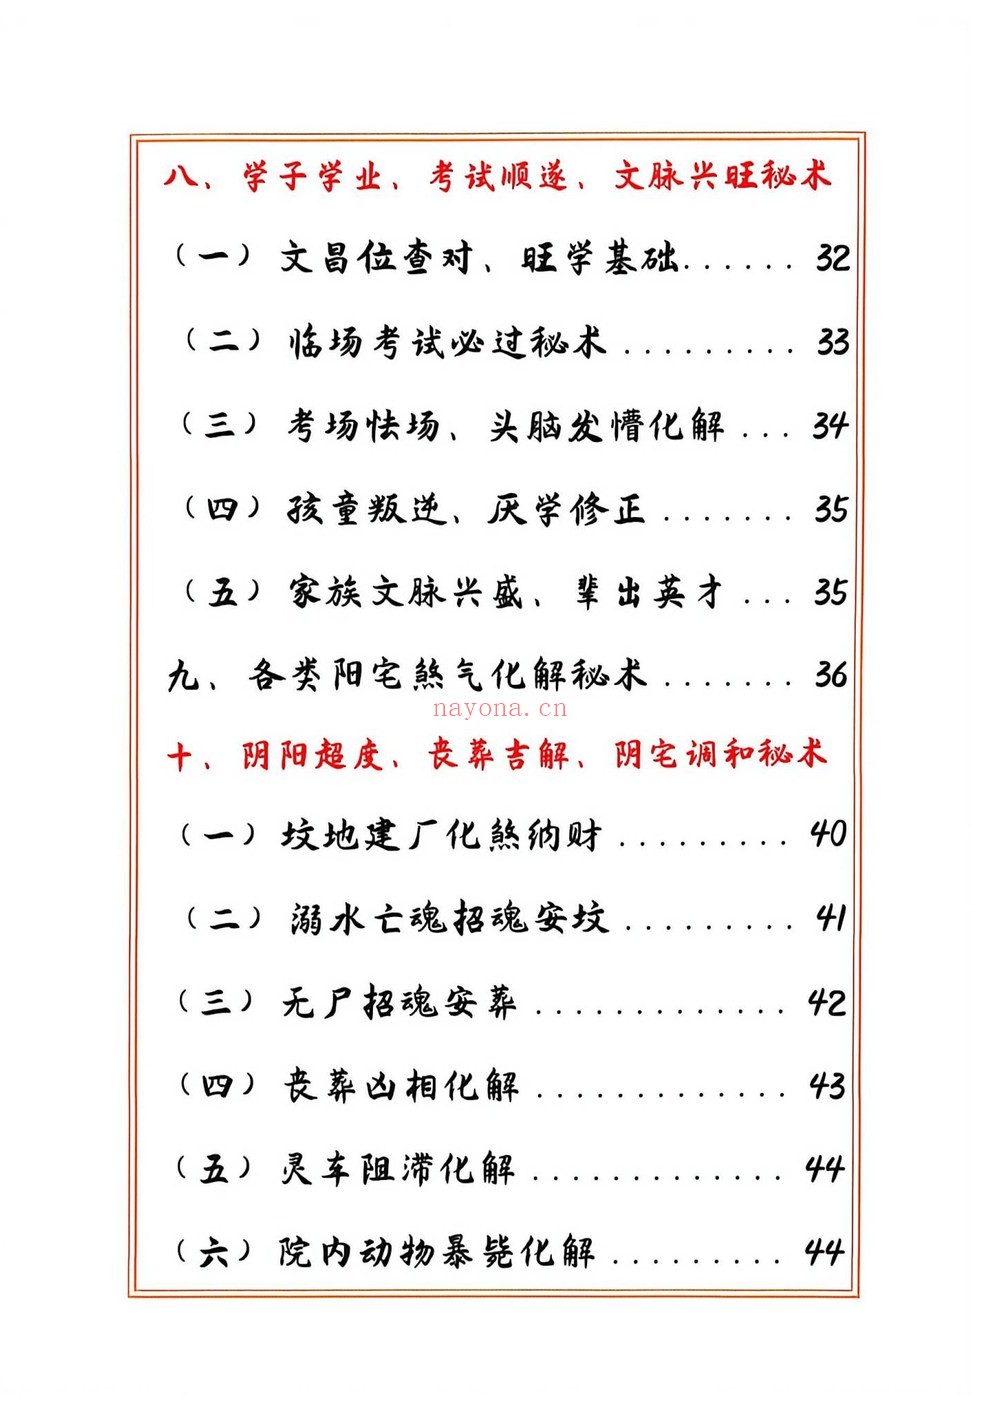 八、学子学业、考试顺遂、文脉兴旺秘术
（一）文昌位查对、旺学基础...... 32
（二）临场考试必过秘术......... 33
（三）考场怯场、头脑发懵化解... 34
（四）孩童叛逆、厌学修正....... 35
（五）家族文脉兴盛、辈出英才... 35
九、各类阳宅煞气化解秘术....... 36
nayona.cn
十、阴阳超度、丧葬吉解、阴宅调和秘术
（一）坟地建厂化煞纳财......... 40
（二）溺水亡魂招魂安坟......... 41
（三）无尸招魂安葬............. 42
（四）丧葬凶相化解............. 43
（五）灵车阻滞化解............. 44
（六）院内动物暴毙化解......... 44